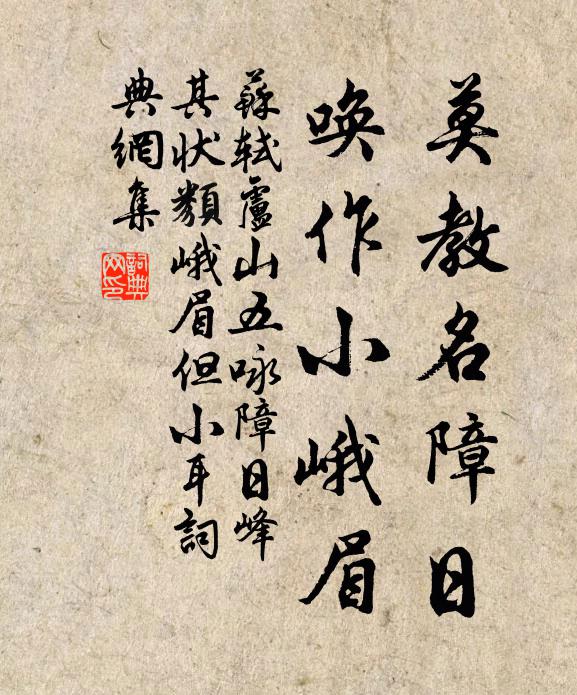 莫教名障日
喚作小峨眉
蘇軾廬山五咏障日峰
其狀類峨眉但小耳詞
典網集
詞典網印